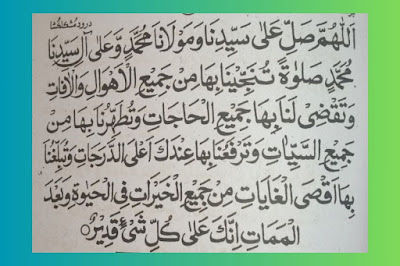 درود تنجینا
اَللّٰهُمَّ صَلِّ عَلٰى سَيِّدِنَا وَمَوْلَانَا مُحَمَّدٍ وَّعَلٰى اٰلِ سَيِّدِنَا
مُحَمَّدٍ صَلٰوةً تُنَجِّيْنَا بِهَا مِنْ جَمِيْعِ الْاَهْوَالِ وَالْاٰفَاتِ
وَتَقْضِىْ لَنَا بِهَا جَمِيْعَ الْحَاجَاتِ وَتُطَهِّرُنَا بِهَا مِنْ
جَمِيْعِ السَّيِّاٰتِ وَتَرْفَعُنَا بِهَا عِنْدَكَ اَعْلَى الدَّرَجَاتِ وَتُبَلِّغُنَا
بِهَا اَقْصَى الْغَايَاتِ مِنْ جَمِيْعِ الْخَيْرَاتِ فِى الْحَيٰوةِ وَبَعْدَ
الْمَمَاتِ اِنَّكَ عَلٰى كُلِّ شَىْءٍ قَدِيْرٌ